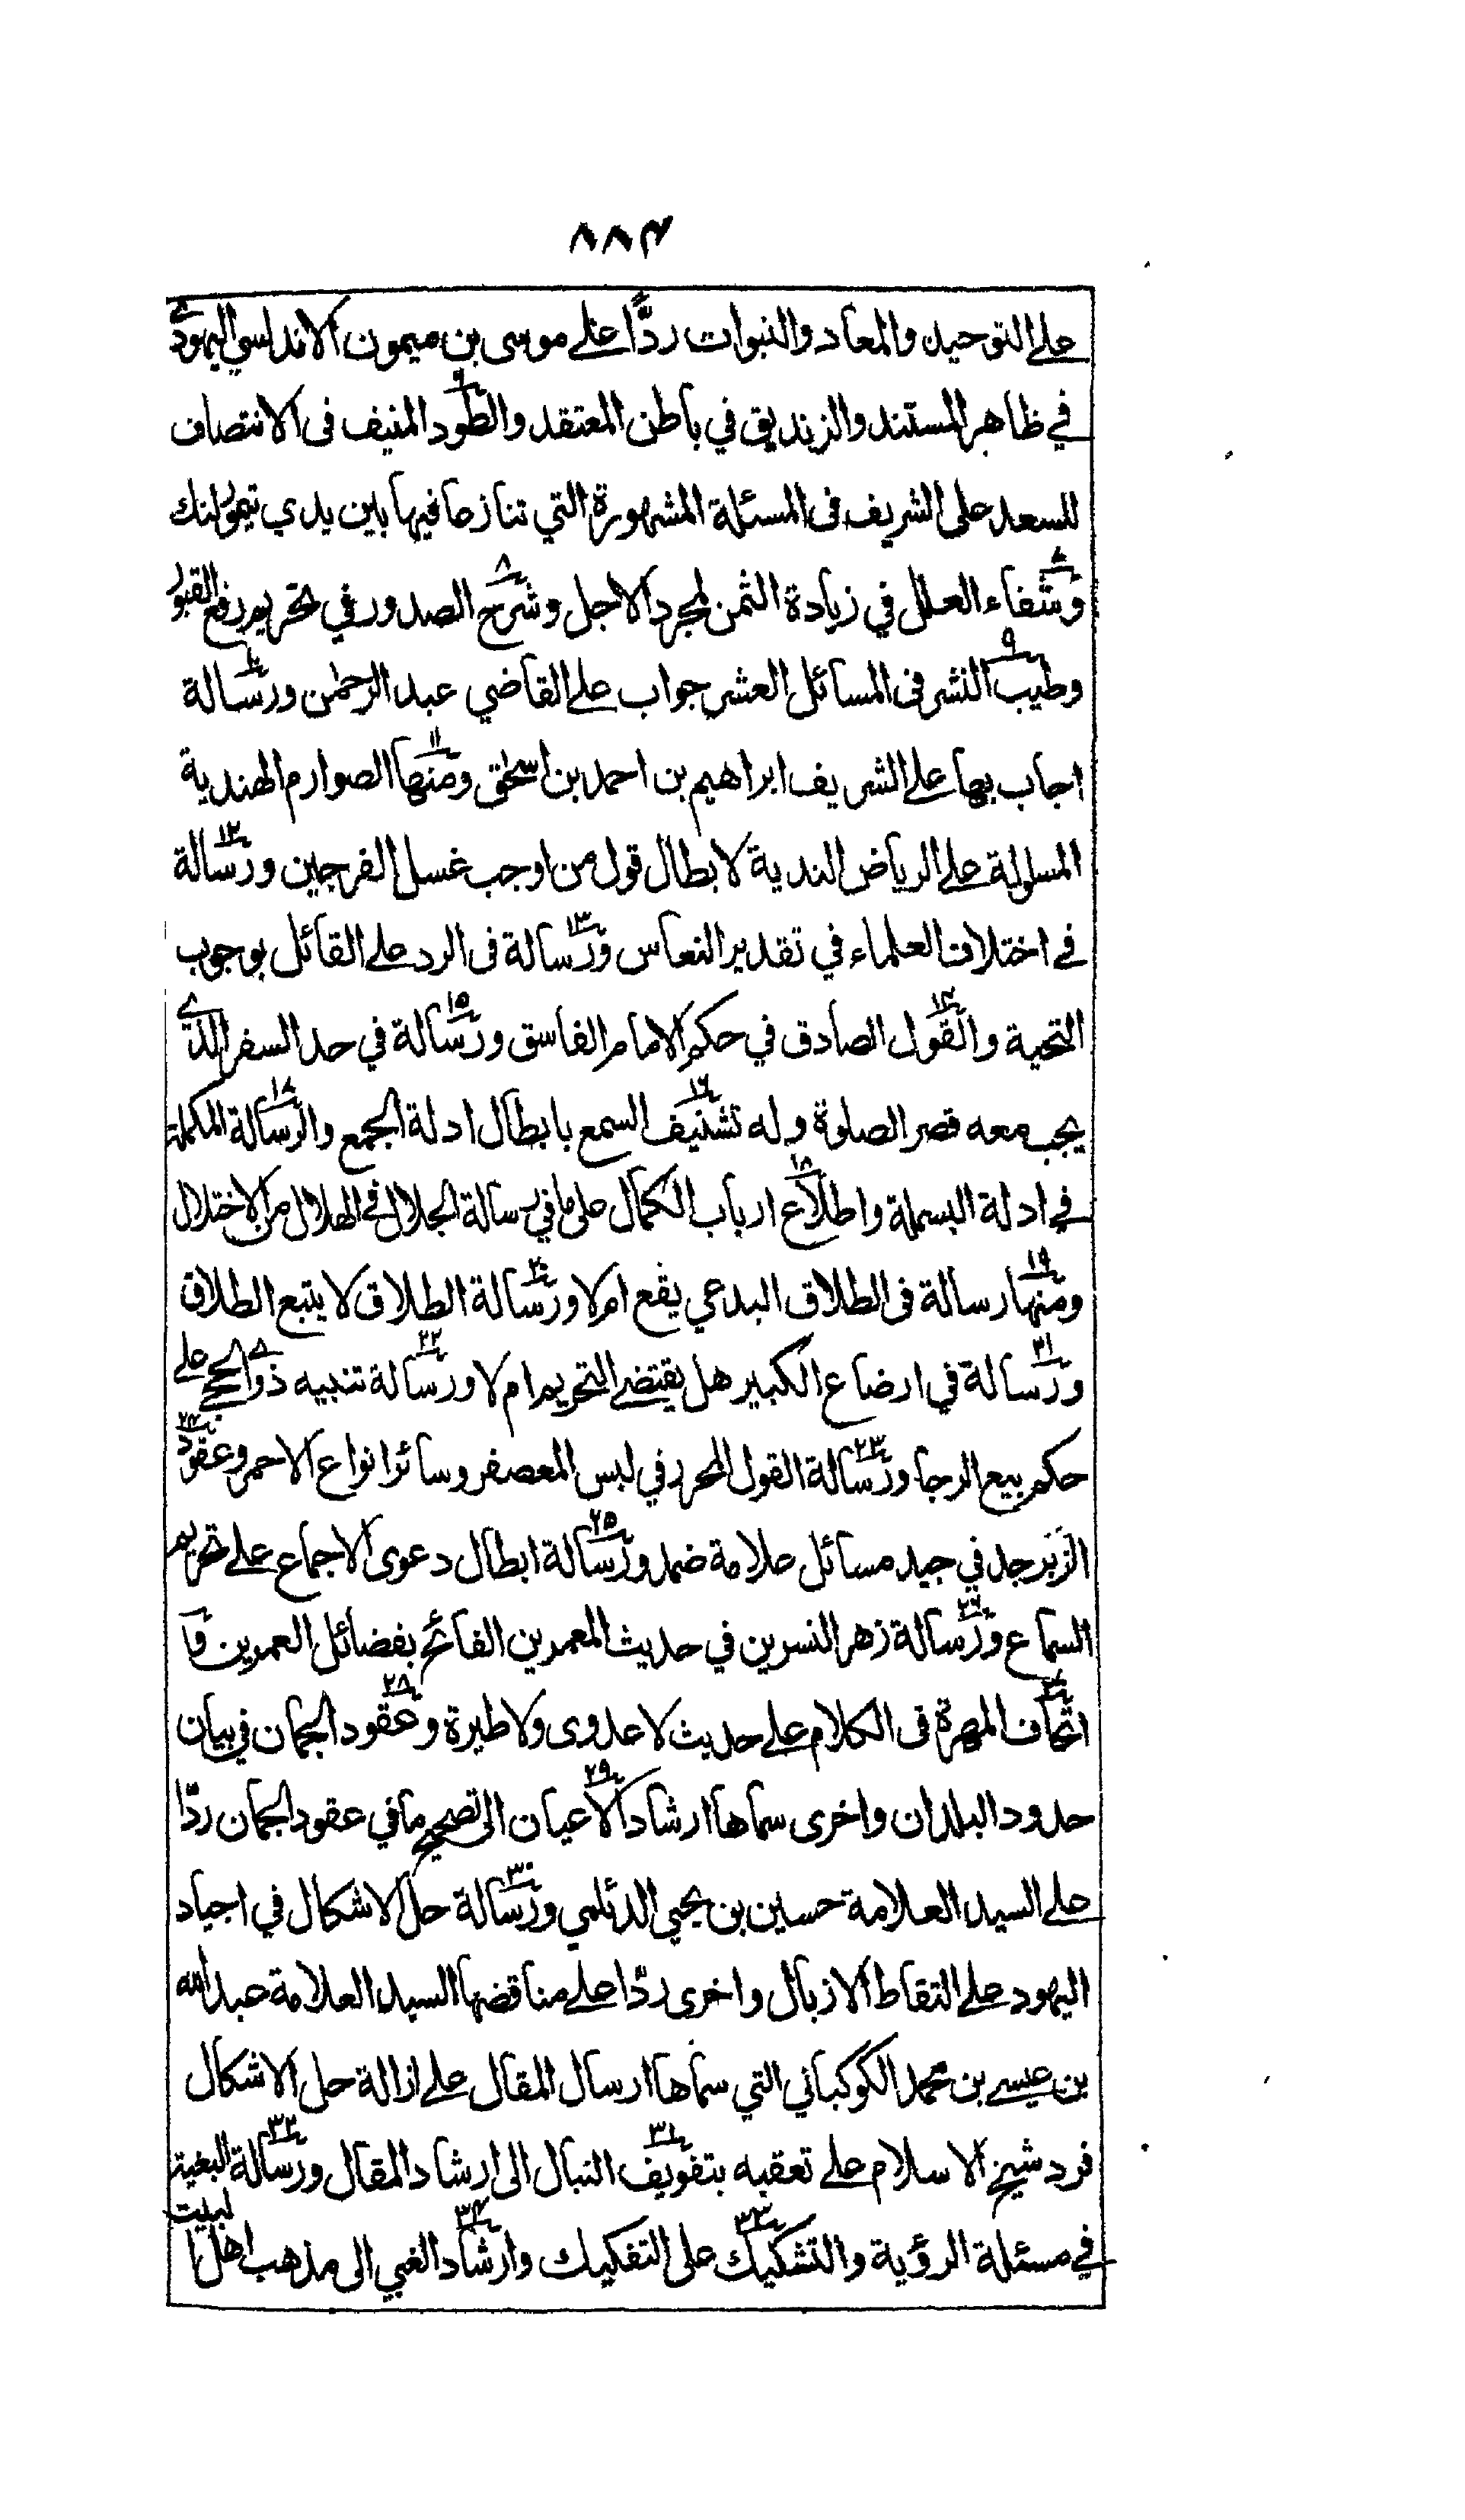 ٨٨٣
على التوحيد والمعاد والنبوات ردًّا على موسى بن ميمون الاندلسي اليهودي
في ظاهر المستند والزنديق في باطن المعتقد والطود المنيف فى الانتصاف
للسعد على الشريف فى المسئلة المشهورة التي تنازعا فيها بين يدي تيمورلنك
وشفاء العلل في زيادة الثمن لمجرد الاجل وشرح الصدور في تحريم رفع القبور
وطيب النشر فى المسائل العشر جواب على القاضي عبد الرحمٰن ورسالة
اجاب بها على الشريف ابراهيم بن احمد بن اسحٰق ومنها الصوارم الهندية
المسلولة على الرياض الندية لابطال قول من اوجب غسل الفرجين ورسالة
في اختلاف العلماء في تقدير النعاس ورسالة فى الرد على القائل بوجوب
التحية والقول الصادق في حكم الامام الفاسق ورسالة في حد السفر الذي
يجب معه قصر الصلوة وله تشنيف السمع بابطال ادلة الجمع والرسالة المكملة
في ادلة البسملة واطلاع ارباب الكمال على ما في رسالة الجلال في الهلال من الاختلال
ومنها رسالة فى الطلاق البدعي يقع ام لا ورسالة الطلاق لا يتبع الطلاق
ورسالة في ارضاع الكبير هل يقتضي التحريم ام لا ورسالة تنبيه ذوي الحجى على
حكم بيع الرجا ورسالة القول المحرر في لبس المعصفر وسائر انواع الاحمر وعقود
الزبرجد في جيد مسائل علامة ضمد ورسالة ابطال دعوى الاجماع على تحريم
السماع ورسالة زهر النسرين في حديث المعمرين الفائح بفضائل العمرين وا
اتحاف المهرة فى الكلام على حديث لا عدوى ولا طيرة وعقود الجمان في بيان
حدود البلدان واخرى سماها ارشاد الاعيان الى تصحيح ما في عقود الجمان ردّا
على السيد العلامة حسين بن يحيى الديلمي ورسالة حل الاشكال في اجباد
اليهود على التقاط الازبال واخرى ردّا على مناقضها السيد العلامة عبد الله
بن عيسى بن محمد الكوكباني التي سماها ارسال المقال على ازالة حل الاشكال
فرد شيخ الاسلام على تعقبه بتفويف النبال الى ارشاد المقال ورسالة البغية
في مسئلة الرؤية والتشكيك على التفكيك وارشاد الغبي الى مذهب اهل البيت